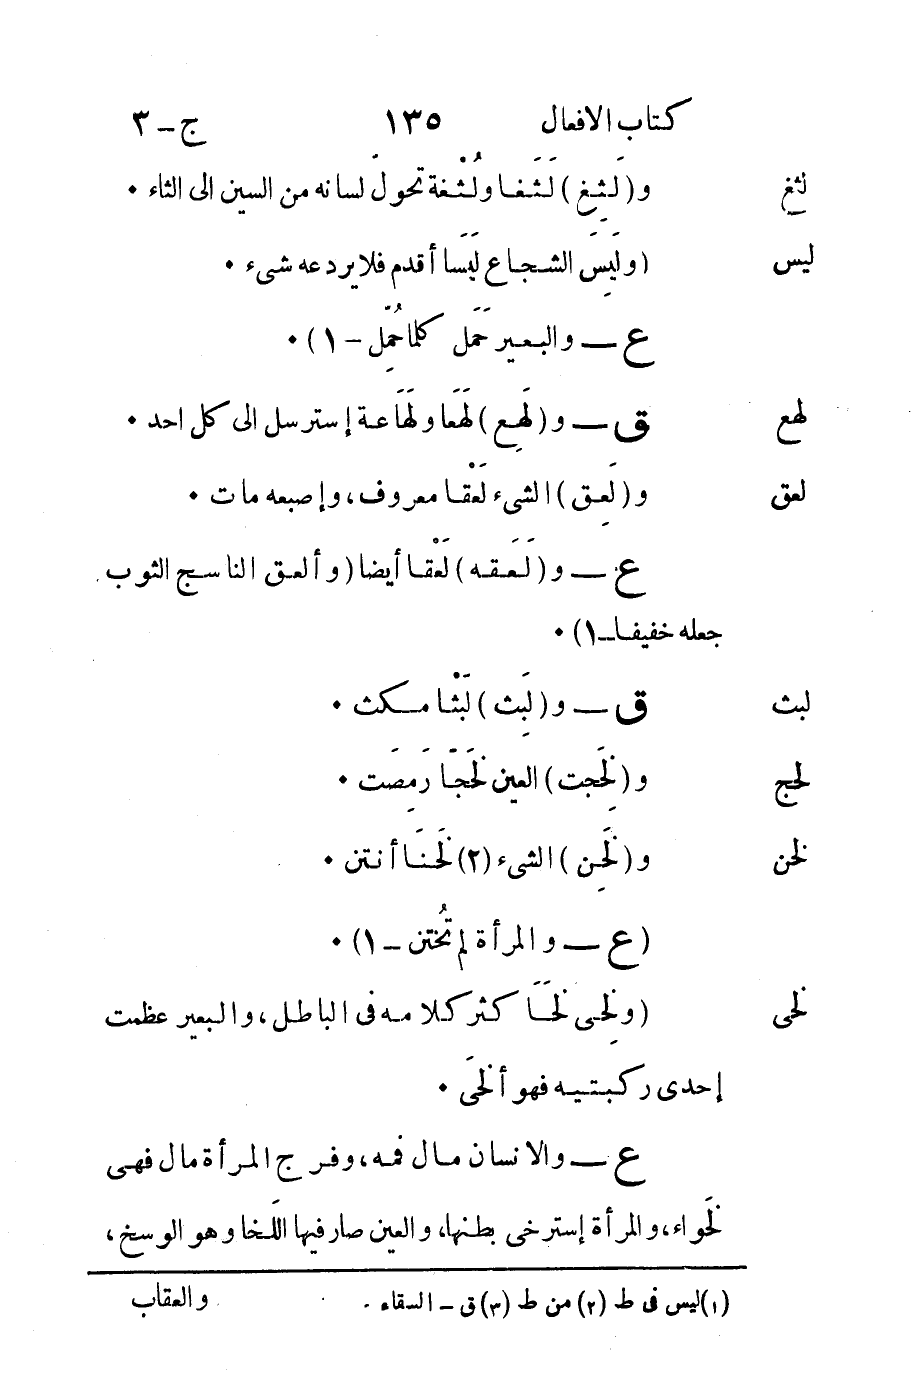 كتاب الافعال ١٣٥ ج-٣
لثغ و(لَثِغ) لَثَغا ولُثْغة تحول لسانه من السين الى الثاء •
ليس (ولَيِسَ الشجاع لَيَسا أقدم فلا يردعه شىء •
ع — والبعير حَمَل كلما حُمِّل - ١) •
لهع ق — و(لَهِع) لَهَعا ولَهَاعة إسترسل الى كل احد •
لعق و(لَعِق) الشىء لَعْقا معروف، وإصبعه مات •
ع — و(لَعَقه) لَعْقا أيضا (وألعق الناسج الثوب
جعله خفيفا - ١) •
لبث ق — و(لَبِث) لَبْثا مكث •
لخج و(لَخِجت) العين لَخَجًا رَمِصَت •
لخن و(لَخِن) الشىء (٢) لَخَنَا أنتن •
(ع — والمرأة لم تُختن - ١) •
لخى (ولَخِى لَخًا كثر كلامه فى الباطل، والبعير عظمت
إحدى ركبتيه فهو ألْخَى •
ع — والانسان مال فمه، وفرج المرأة مال فهى
لَخواء، والمرأة إسترخى بطنها، والعين صار فيها اللَخا وهو الوسخ،
(١) ليس فى ط (٢) من ط (٣) ق - السقاء . والعقاب